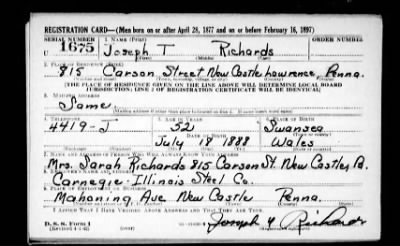 REGISTRATION CARD—(Men born on or after April 28, 1877 and on or before February 16, 1897)
SERIAL NUMBER 1. NAME (Print)
U 1675 Joseph T Richards
(First) (Middle) (Last)
2. PLACE OF RESIDENCE (Print)
815 Carson Street New Castle Lawrence, Penna.
(Number and street) (Town, township, village, or city) (County) (State)
[THE PLACE OF RESIDENCE GIVEN ON THE LINE ABOVE WILL DETERMINE LOCAL BOARD
JURISDICTION; LINE 2 OF REGISTRATION CERTIFICATE WILL BE IDENTICAL]
3. MAILING ADDRESS
Same
[Mailing address if other than place indicated on line 2. If same insert word same]
4. TELEPHONE 5. AGE IN YEARS 6. PLACE OF BIRTH
4419-J 52 Swansea
DATE OF BIRTH
July 18 1888 Wales
7. NAME AND ADDRESS OF PERSON WHO WILL ALWAYS KNOW YOUR ADDRESS
Mrs. Sarah Richards 815 Carson St. New Castle, Pa.
8. EMPLOYER'S NAME AND ADDRESS
Carnegie-Illinois Steel Co.
9. PLACE OF EMPLOYMENT OR BUSINESS
Mahoning Ave New Castle Penna.
I AFFIRM THAT I HAVE VERIFIED ABOVE ANSWERS AND THAT THEY ARE TRUE.
D. S. S. Form 1
(Revised 4-1-42) Joseph T Richards